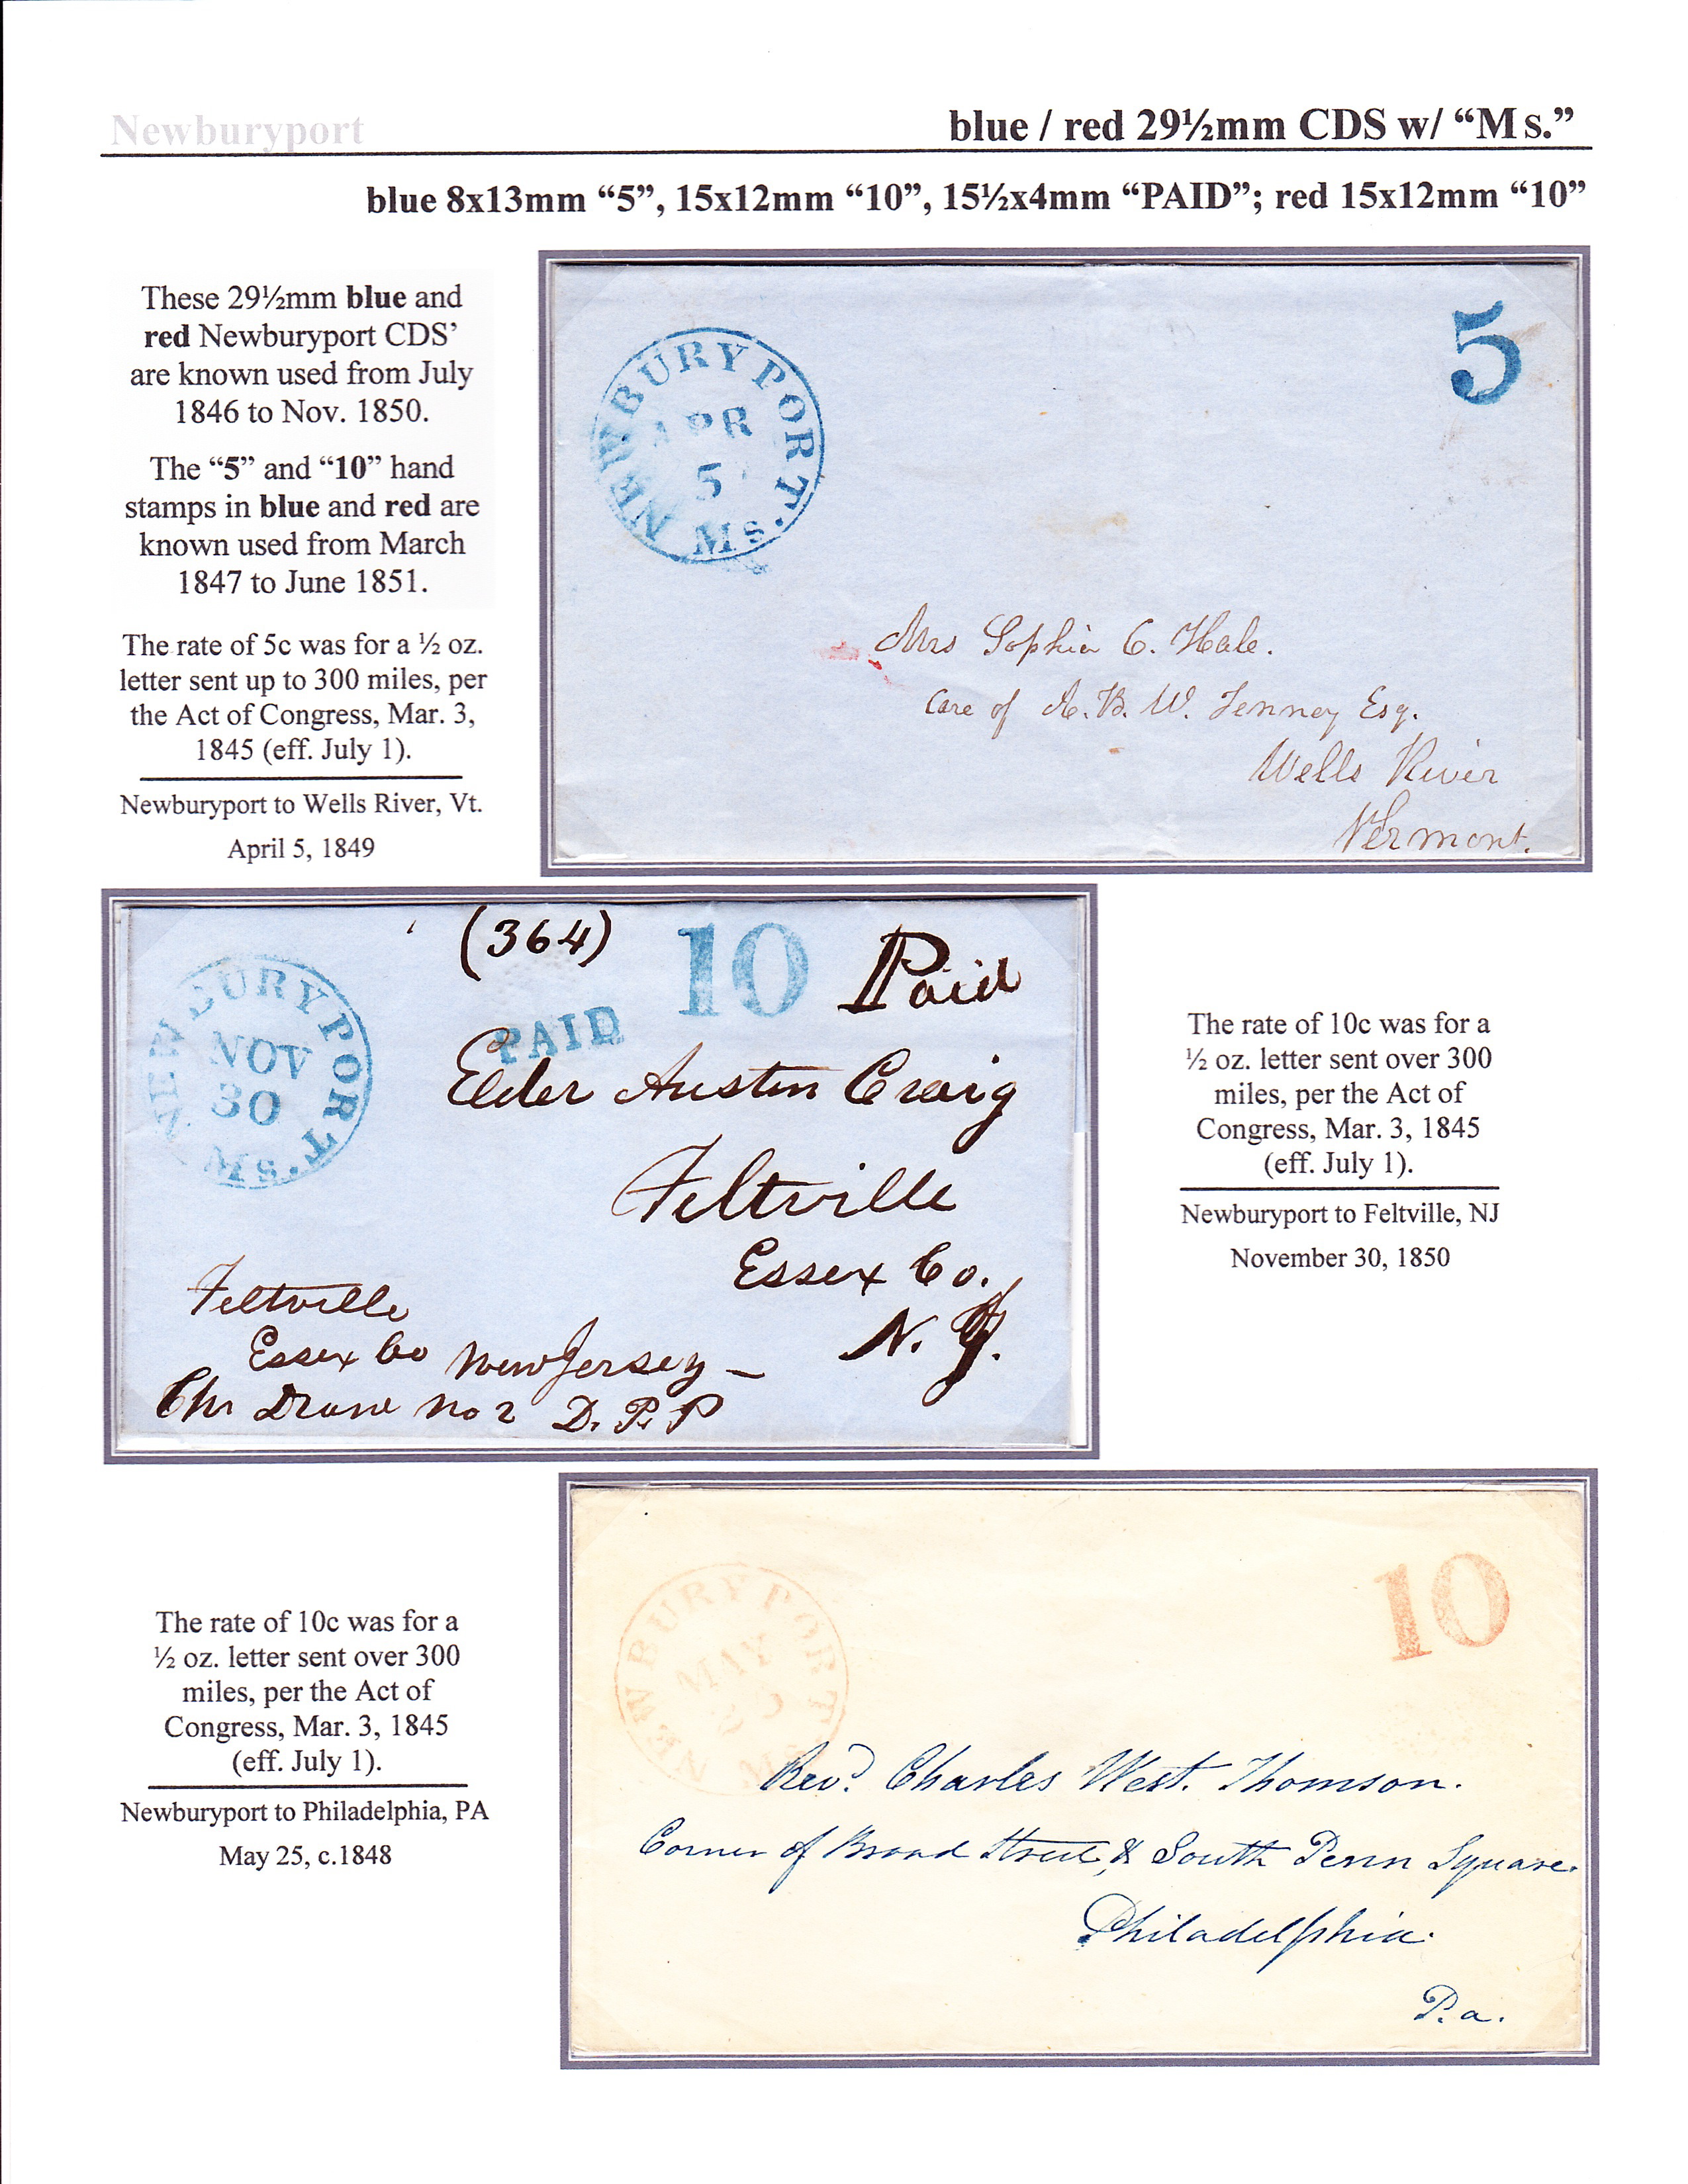 Newburyport
blue / red 29½mm CDS w/ “Ms.”
blue 8x13mm “5”, 15x12mm “10”, 15½x4mm “PAID”; red 15x12mm “10”
These 29½mm blue and
red Newburyport CDS’
are known used from July
1846 to Nov. 1850.
The “5” and “10” hand
stamps in blue and red are
known used from March
1847 to June 1851.
The rate of 5c was for a ½ oz.
letter sent up to 300 miles, per
the Act of Congress, Mar. 3,
1845 (eff. July 1).
Newburyport to Wells River, Vt.
April 5, 1849
NEWBURYPORT
APR
5
Ms.
5
Mrs Sophia C. Hale.
Care of A. B. W. Tenney Esq.
Wells River
Vermont.
(364)
10
Paid
PAID
NEWBURYPORT
NOV
30
Ms.
Elder Austin Craig
Feltville
Essex Co.
N. J.
Feltville
Essex Co New Jersey
No 2 D. P. P
The rate of 10c was for a
½ oz. letter sent over 300
miles, per the Act of
Congress, Mar. 3, 1845
(eff. July 1).
Newburyport to Feltville, NJ
November 30, 1850
The rate of 10c was for a
½ oz. letter sent over 300
miles, per the Act of
Congress, Mar. 3, 1845
(eff. July 1).
Newburyport to Philadelphia, PA
May 25, c.1848
NEWBURYPORT
MAY
10
Revd. Charles West. Thomson.
Corner of Broad Street, & South Penn Square.
Philadelphia.
Pa.